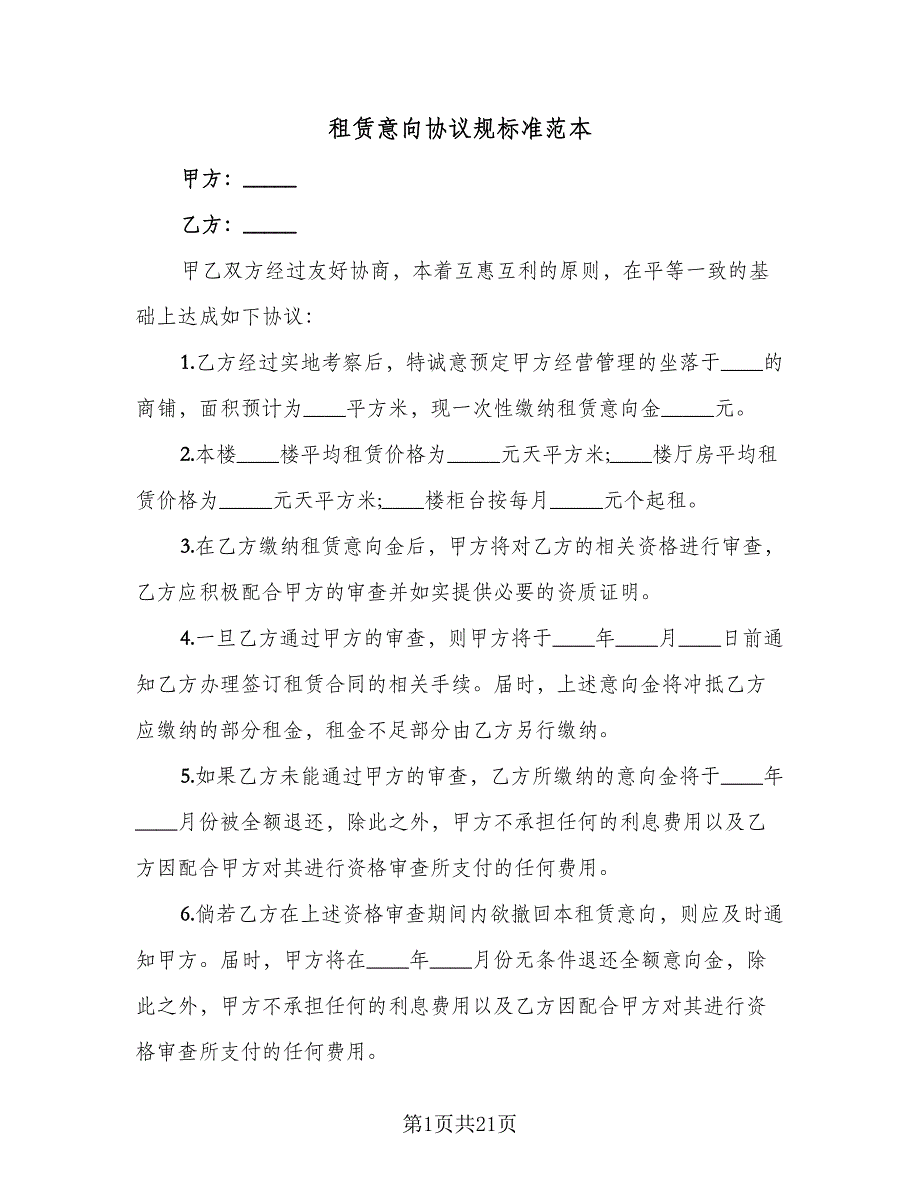 租赁意向协议规标准范本
甲方：_____
乙方：_____
甲乙双方经过友好协商，本着互惠互利的原则，在平等一致的基
础上达成如下协议：
1.乙方经过实地考察后，特诚意预定甲方经营管理的坐落于____的
商铺，面积预计为____平方米，现一次性缴纳租赁意向金_____元。
2.本楼____楼平均租赁价格为_____元天平方米;____楼厅房平均租
赁价格为_____元天平方米;____楼柜台按每月_____元个起租。
3.在乙方缴纳租赁意向金后，甲方将对乙方的相关资格进行审查，
乙方应积极配合甲方的审查并如实提供必要的资质证明。
4.一旦乙方通过甲方的审查，则甲方将于____年____月____日前通
知乙方办理签订租赁合同的相关手续。届时，上述意向金将冲抵乙方
应缴纳的部分租金，租金不足部分由乙方另行缴纳。
5.如果乙方未能通过甲方的审查，乙方所缴纳的意向金将于____年
____月份被全额退还，除此之外，甲方不承担任何的利息费用以及乙
方因配合甲方对其进行资格审查所支付的任何费用。
6.倘若乙方在上述资格审查期间内欲撤回本租赁意向，则应及时通
知甲方。届时，甲方将在____年____月份无条件退还全额意向金，除
此之外，甲方不承担任何的利息费用以及乙方因配合甲方对其进行资
格审查所支付的任何费用。
第1页共21页